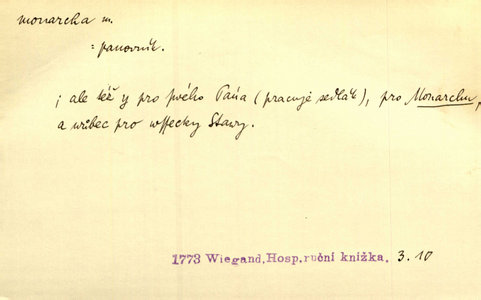 monarcha m.
= panovník.
; ale též y pro swého Pána (pracuje sedlák), pro Monarchu,
a wůbec pro wssecky Stawy.
1773 Wiegand, Hosp. ruční knížka. 3.10